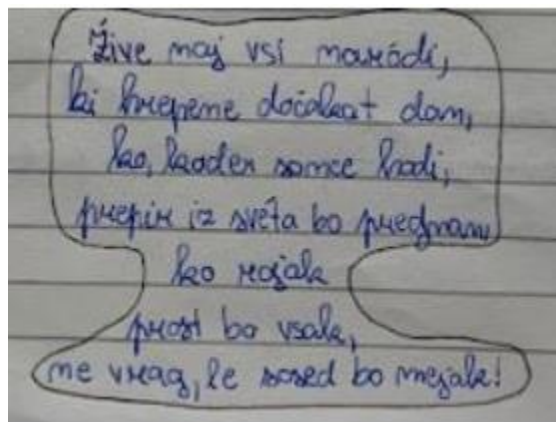 Žive naj vsi naródi,
ki hrepene dočakat dan,
ko, koder sonce hodi,
prepir iz svéta bo pregnan,
ko rojak
prost bo vsak,
ne vrag, le sosed bo mejak!